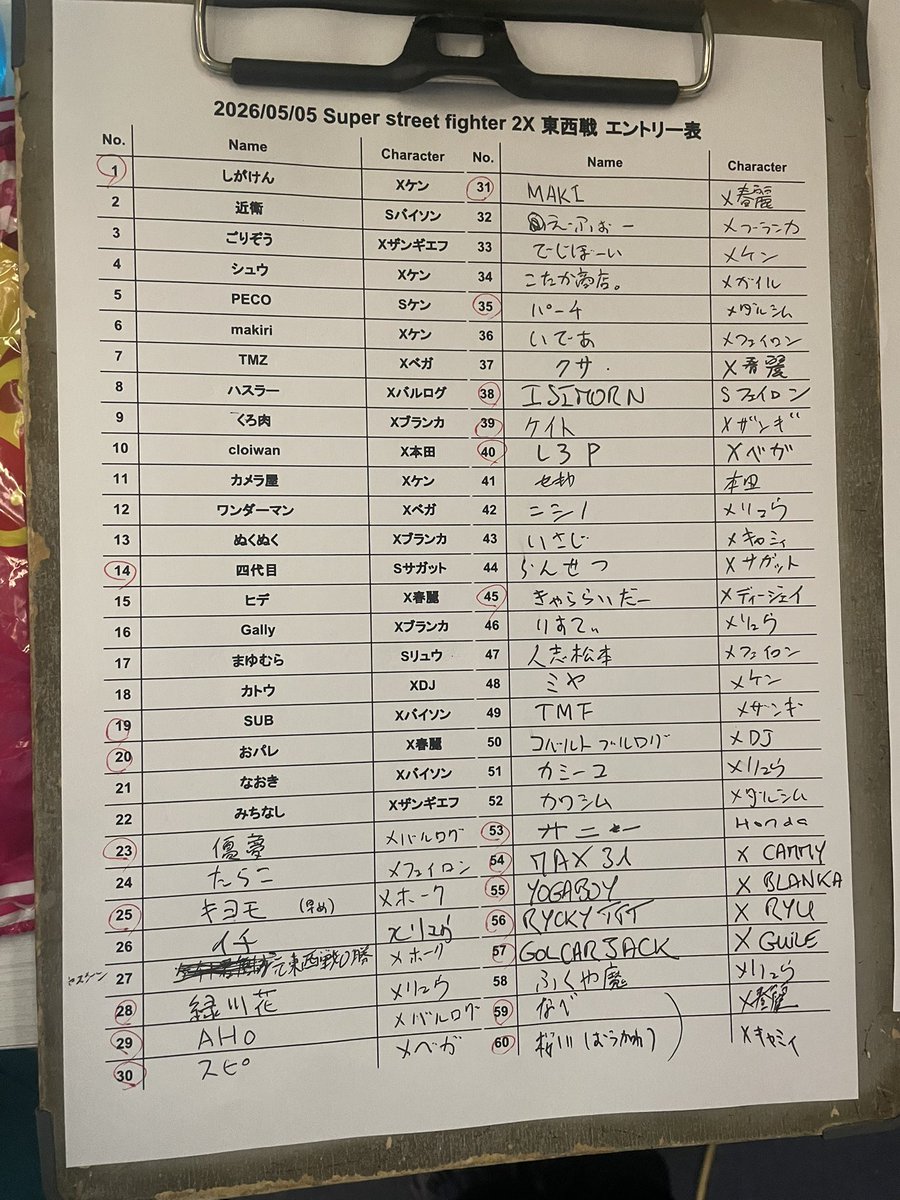 2026/05/05 Super street fighter 2X 東西戦 エントリー表
No. Name Character No. Name Character
1 しがけん Xケン 31 MAKI X春麗
2 近衛 Sバイソン 32 えーふぉー Xブーランカ
3 ごりぞう Xザンギエフ 33 でーじぼーい Xケン
4 シュウ Xケン 34 こたか商店。 Xガイル
5 PECO Sケン 35 パーチ Xダルシム
6 makiri Xケン 36 いてあ Xフェイロン
7 TMZ Xベガ 37 クサ. X春麗
8 ハスラー Xバルログ 38 ISIMORN Sフェイロン
9 くろ肉 Xブランカ 39 ケイト Xザンギ
10 cloiwan X本田 40 しろP Xベガ
11 カメラ屋 Xケン 41 本田
12 ワンダーマン Xベガ 42 ニシノ Xリュウ
13 ぬくぬく Xブランカ 43 いさじ Xキャミィ
14 四代目 Sサガット 44 らんせつ Xサガット
15 ヒデ X春麗 45 きゃららいだー Xディージェイ
16 Gally Xブランカ 46 りすてぃ Xリュウ
17 まゆむら Sリュウ 47 人志松本 Xフェイロン
18 カトウ XDJ 48 ミヤ Xケン
19 SUB Xバイソン 49 TMF Xザンギ
20 おパレ X春麗 50 コバルトブルログ XDJ
21 なおき Xバイソン 51 カミーユ Xリュウ
22 みちなし Xザンギエフ 52 カワシム Xダルシム
23 優夢 Xバルログ 53 サニー Honda
24 たらこ Xフェイロン 54 MAX 31 X CAMMY
25 キヨモ (早め) Xホーク 55 YOGABOY X BLANKA
26 イチ Xリュウ 56 RYCKY TTT X RYU
27 て東西戦0勝 Xホーク 57 GOLCARJACK X GUILE
28 緑川花 Xリュウ 58 ふくや魔 Xリュウ
29 AHO Xバルログ 59 なべ X春麗
30 スピ Xベガ 60 桜川 Xキャミィ